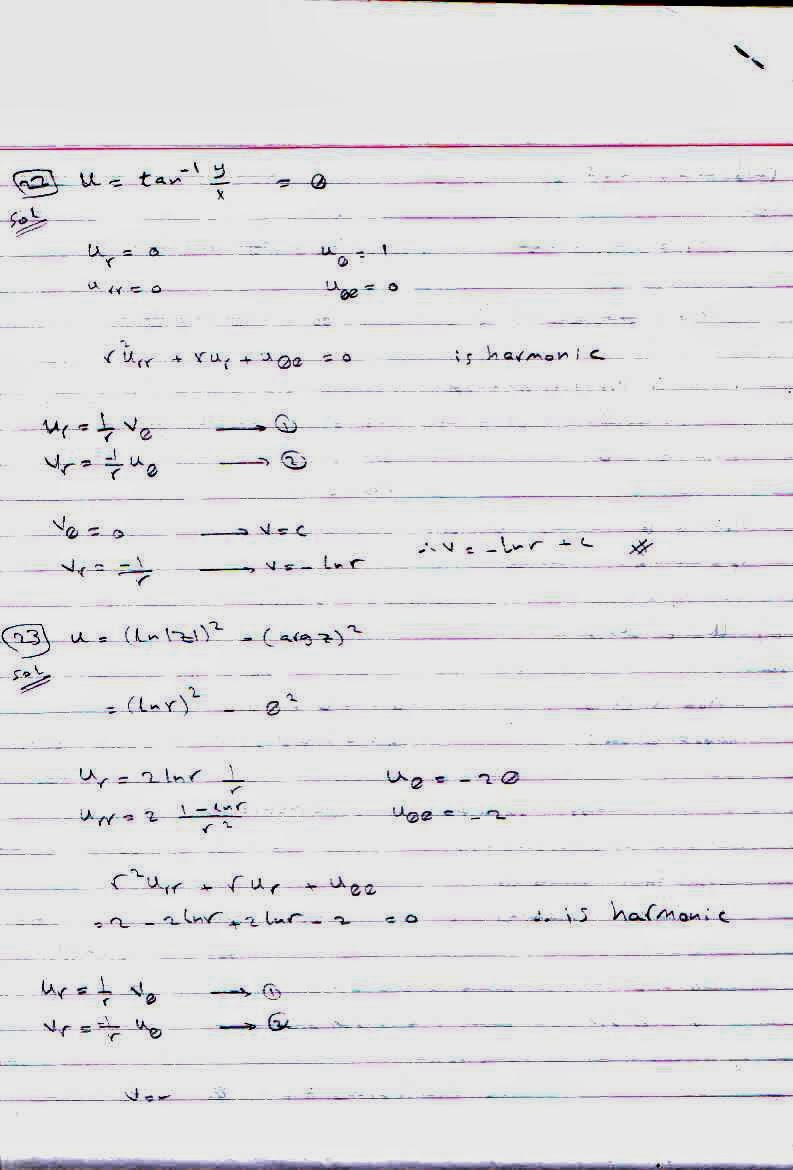 22 u = tan⁻¹ y/x = θ
Sol
u_r = 0 u_θ = 1
u_rr = 0 u_θθ = 0
r²u_rr + ru_r + u_θθ = 0 is harmonic
u_r = 1/r v_θ → ①
v_r = -1/r u_θ → ②
v_θ = 0 → v = c
∴ v = -ln r + c
v_r = -1/r → v = - ln r
23 u = (ln|z|)² - (arg z)²
Sol
= (ln r)² - θ²
u_r = 2 ln r 1/r u_θ = -2θ
u_rr = 2 (1 - ln r)/r² u_θθ = -2
r²u_rr + r u_r + u_θθ
= 2 - 2 ln r + 2 ln r - 2 = 0 ∴ is harmonic
u_r = 1/r v_θ → ①
v_r = -1/r u_θ → ②
v =